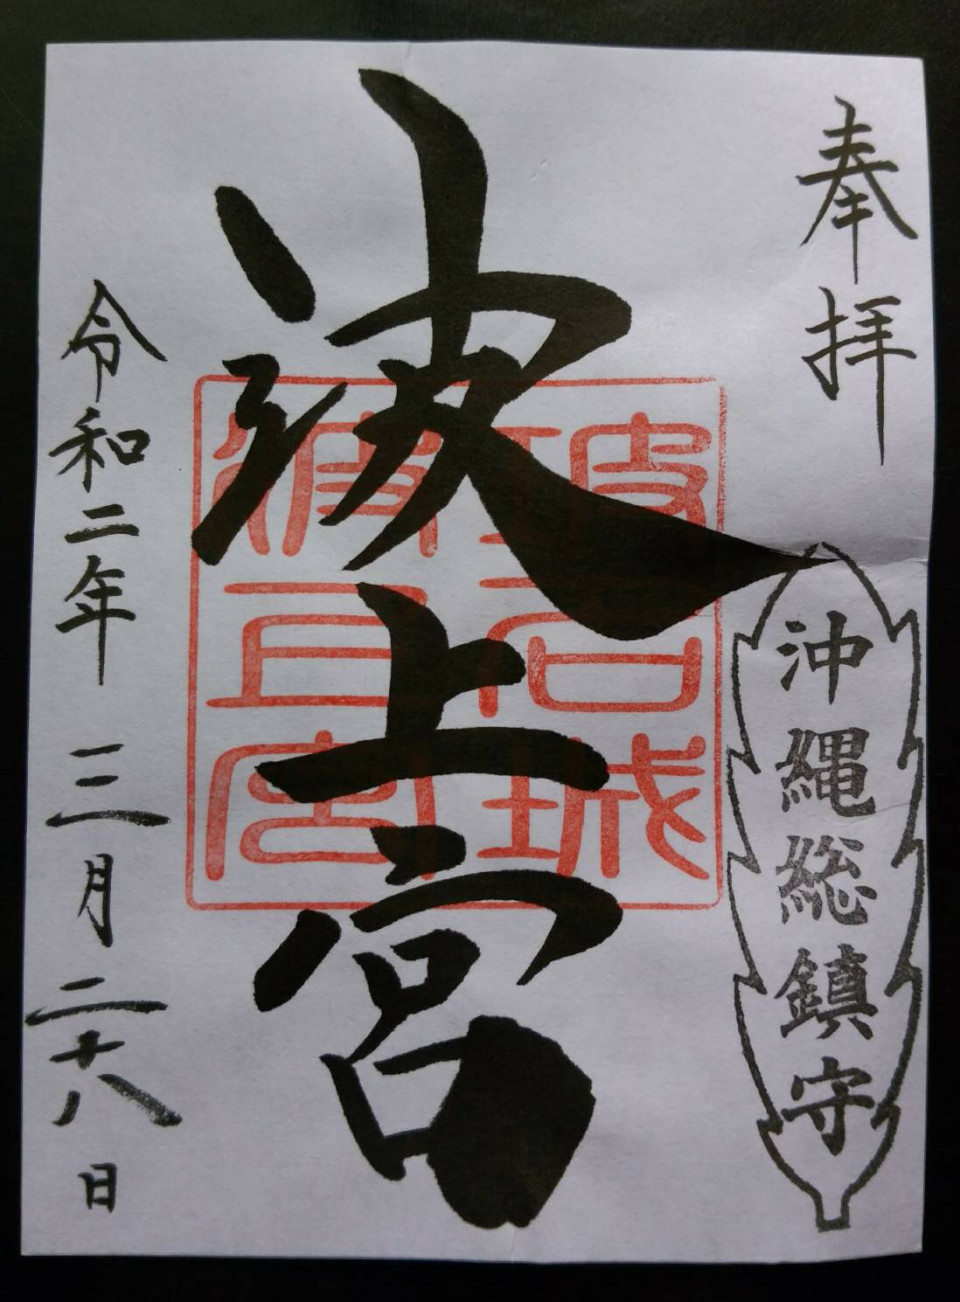 奉拝
沖縄総鎮守
波上宮
波石城
波上宮
令和二年 三月二十八日